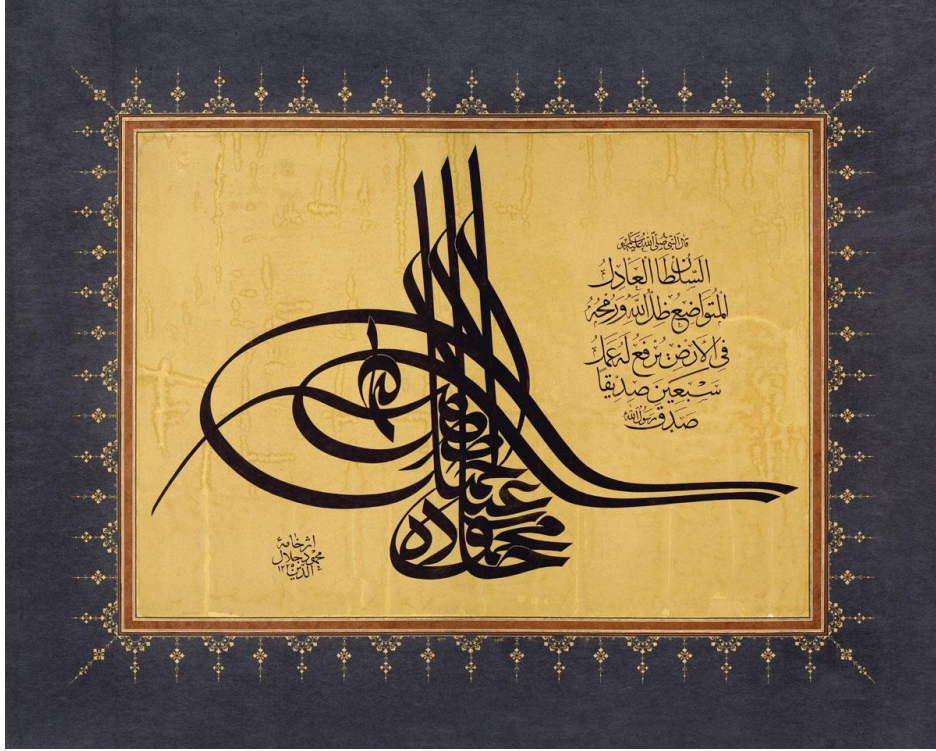 قال النبي صلى الله عليه وسلم
السلطان العادل
المتواضع ظل الله ورمحه
فى الارض يرفع له عمل
سبعين صديقا
صدق رسول الله
محمود خان بن عبد الحميد مظفر دائما
اثر خامهٔ
محمود جلال
الدين